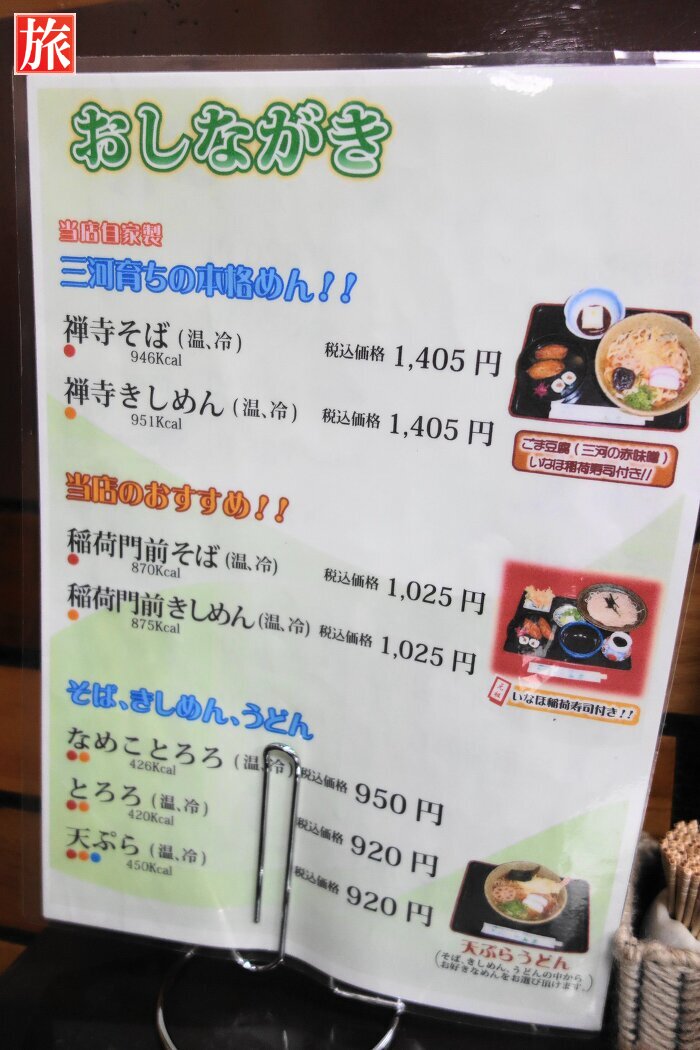 旅
おしながき
当店自家製
三河育ちの本格めん!!
禅寺そば(温、冷) 税込価格 1,405円
946Kcal
禅寺きしめん(温、冷) 税込価格 1,405円
951Kcal
ごま豆腐(三河の赤味噌)
いなほ稲荷寿司付き!!
当店のおすすめ!!
稲荷門前そば(温、冷) 税込価格 1,025円
870Kcal
稲荷門前きしめん(温、冷) 税込価格 1,025円
875Kcal
いなほ稲荷寿司付き!!
そば、きしめん、うどん
なめことろろ(温、冷) 税込価格 950円
426Kcal
とろろ(温、冷) 税込価格 920円
420Kcal
天ぷら(温、冷) 税込価格 920円
450Kcal
天ぷらうどん
(そば、きしめん、うどんの中から
お好きなめんをお選び頂けます。)